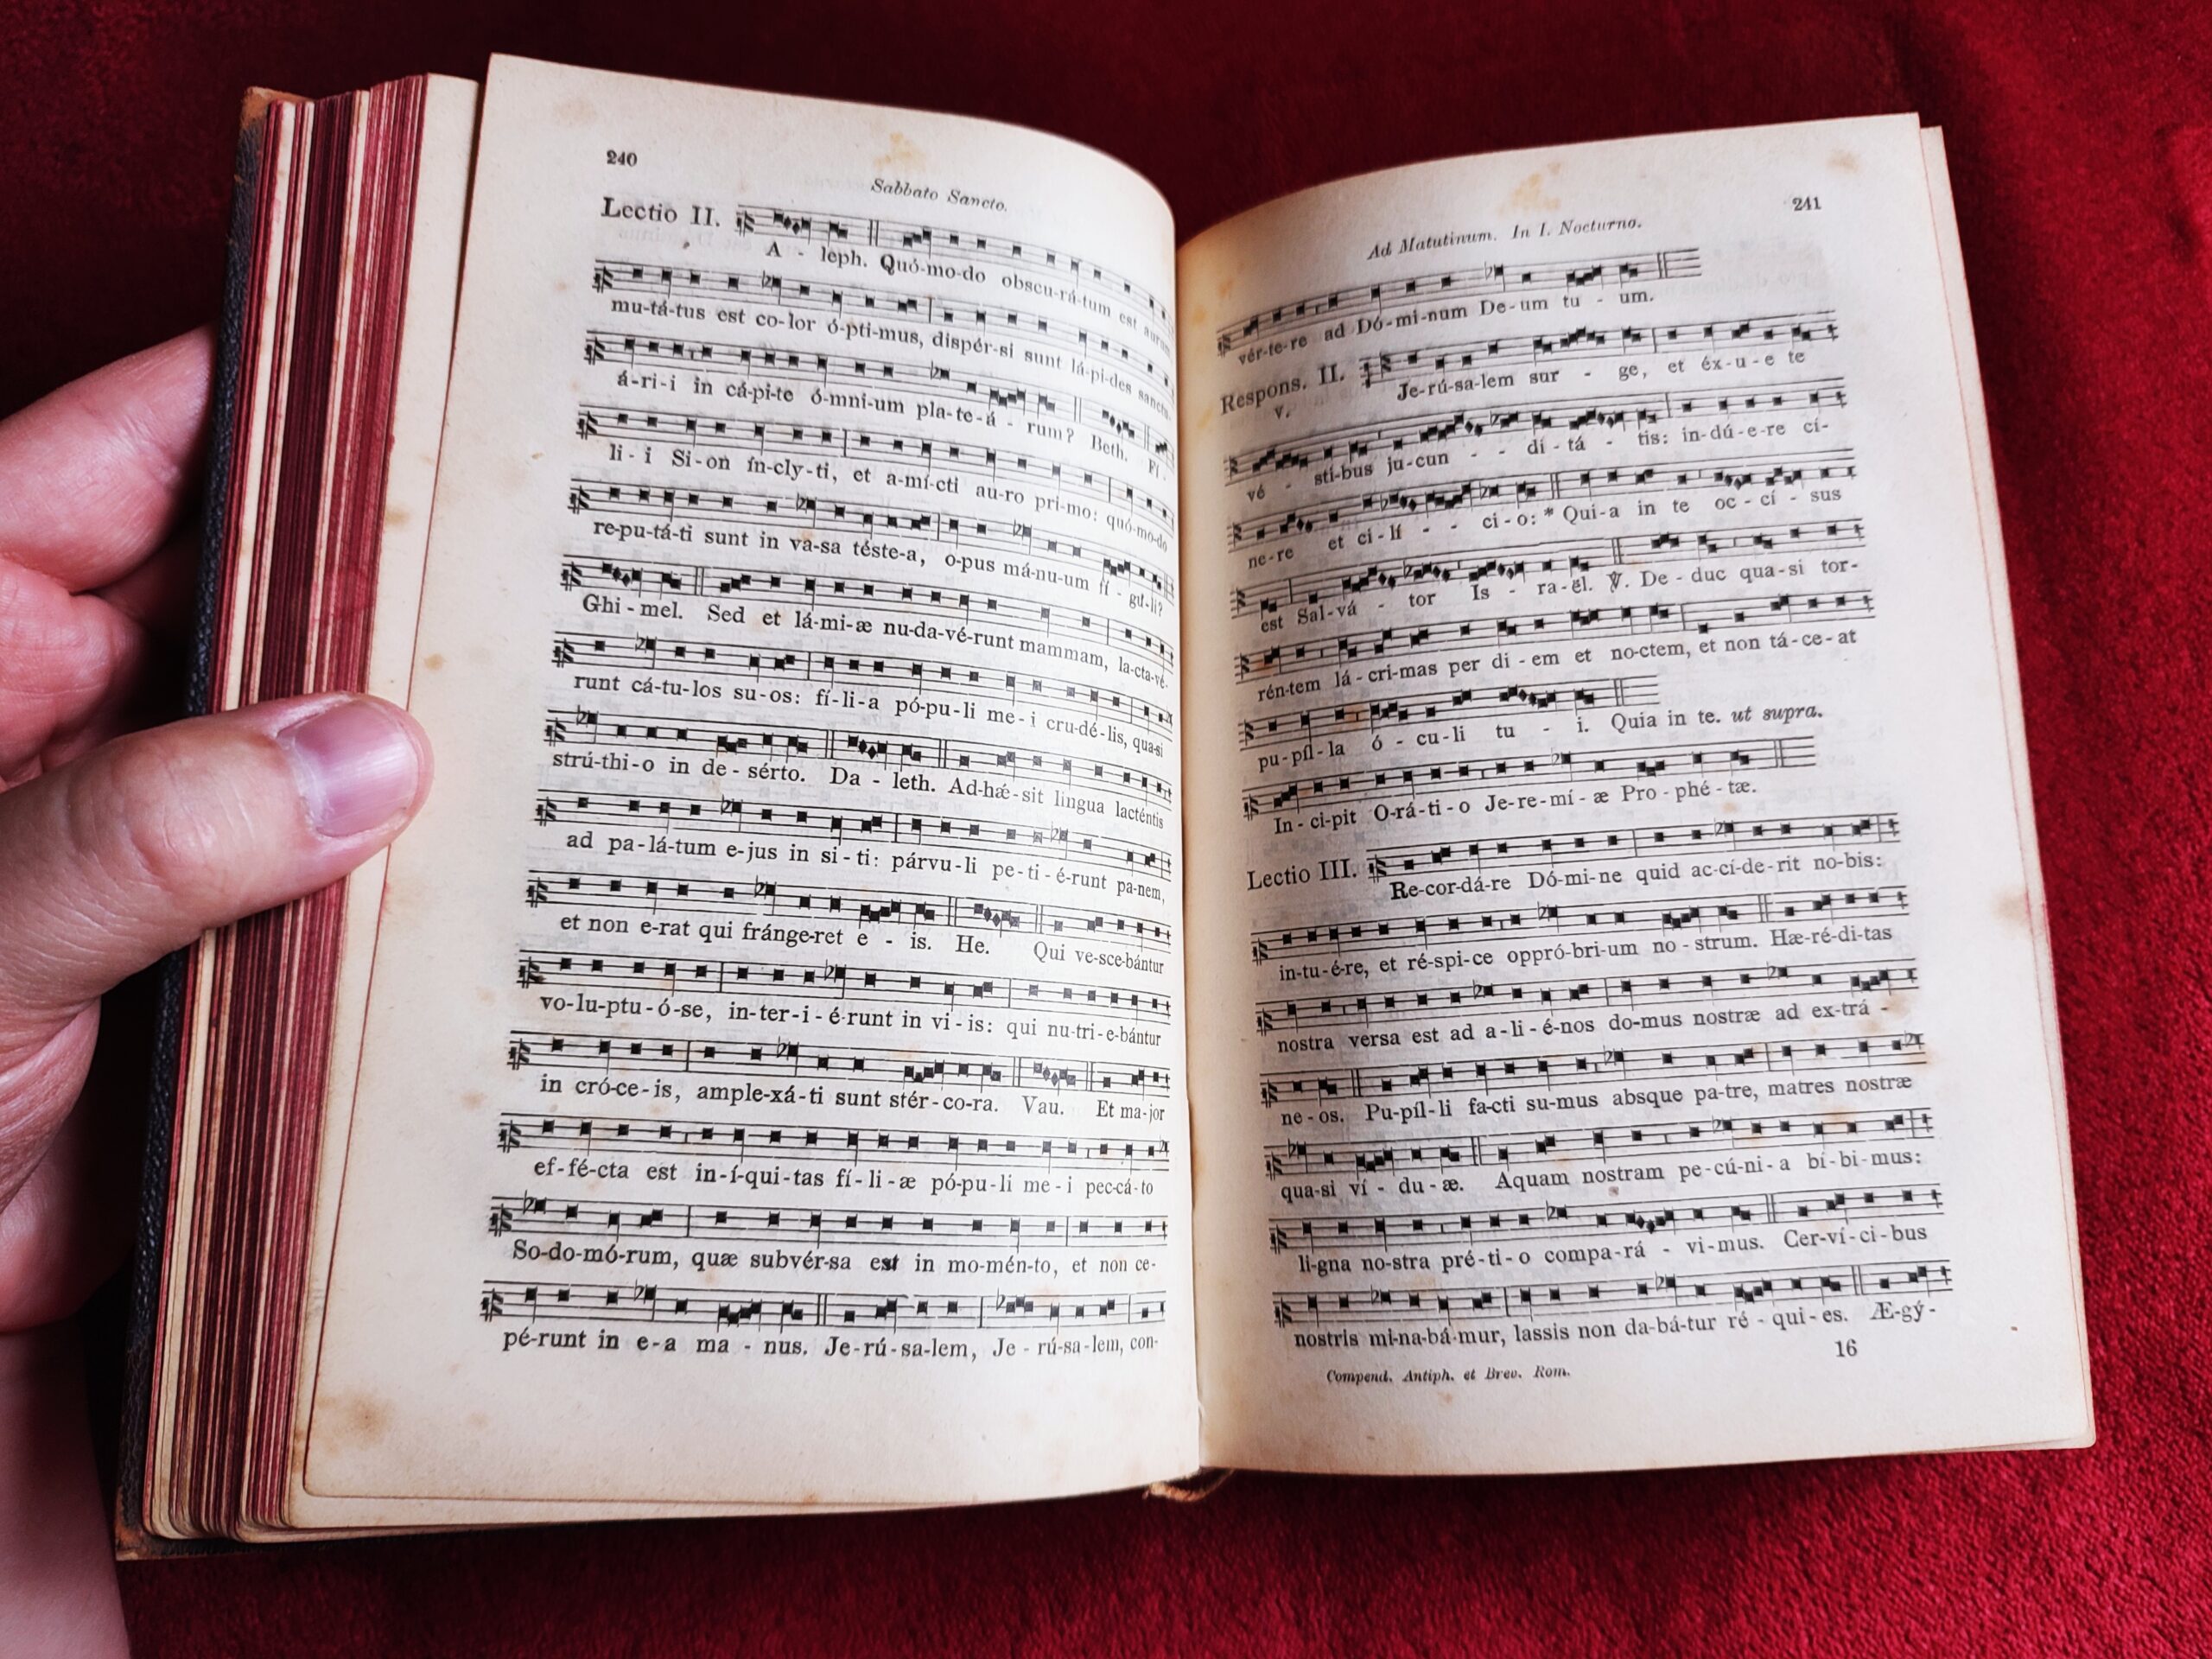 240
Sabbato Sancto.
Lectio II.
A - leph. Quó-mo-do obscu-rá-tum est aurum
mu-tá-tus est co-lor ó-pti-mus, dispér-si sunt lá-pi-des sanctu-
á-ri-i in cá-pi-te ó-mni-um pla-te-á - rum? Beth. Fí -
li - i Si-on ín-cly-ti, et a-mí-cti au-ro pri-mo: quó-mo-do
re-pu-tá-ti sunt in va-sa téste-a, o-pus má-nu-um fí - gu-li?
Ghi - mel. Sed et lá-mi-æ nu-da-vé-runt mammam, la-cta-vé-
runt cá-tu-los su-os: fí-li-a pó-pu-li me-i cru-dé-lis, qua-si
strú-thi-o in de-sérto. Da - leth. Ad-hǽ-sit lingua lacténtis
ad pa-lá-tum e-jus in si-ti: párvu-li pe-ti-é-runt pa-nem,
et non e-rat qui fránge-ret e - is. He. Qui ve-sce-bántur
vo-lu-ptu-ó-se, in-ter-i-é-runt in vi-is: qui nu-tri-e-bántur
in cró-ce-is, ample-xá-ti sunt stér-co-ra. Vau. Et ma-jor
ef-fé-cta est in-í-qui-tas fí-li-æ pó-pu-li me-i pec-cá-to
So-do-mó-rum, quæ subvér-sa est in mo-mén-to, et non ce-
pé-runt in e-a ma - nus. Je-rú-sa-lem, Je - rú-sa-lem, con-
Ad Matutinum. In I. Nocturno.
241
vér-te-re ad Dó-mi-num De-um tu - um.
Respons. II.
V.
Je-rú-sa-lem sur - ge, et éx-u-e te
vé - sti-bus ju-cun - - di-tá - tis: in-dú-e-re cí-
ne-re et ci-lí - - ci-o: * Qui-a in te oc-cí-sus
est Sal-vá - tor Is - ra-ël. ℣. De - duc qua-si tor-
rén-tem lá-cri-mas per di-em et no-ctem, et non tá-ce-at
pu-píl-la ó - cu-li tu - i. Quia in te. ut supra.
In-ci-pit O-rá-ti-o Je-re-mí-æ Pro-phé-tæ.
Lectio III.
Re-cor-dá-re Dó-mi-ne quid ac-cí-de-rit no-bis:
in-tu-é-re, et ré-spi-ce oppró-bri-um no-strum. Hæ-ré-di-tas
nostra versa est ad a-li-é-nos domus nostræ ad ex-trá -
ne-os. Pu-píl-li fa-cti su-mus absque pa-tre, matres nostræ
qua-si ví - du-æ. Aquam nostram pe-cú-ni-a bí-bi-mus:
li-gna no-stra pré-ti-o compa-rá - vi-mus. Cer-ví-ci-bus
nostris mi-na-bá-mur, lassis non da-bá-tur ré-qui-es. Æ-gý-
16
Compend. Antiph. et Brev. Rom.